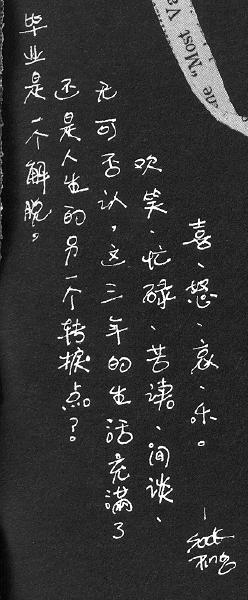 毕业是一个解脱。
还是人生的另一个转捩点？
无可否认，这三年的生活充满了
欢笑、忙碌、苦读、间谈、
喜、怒、哀、乐。
"Most